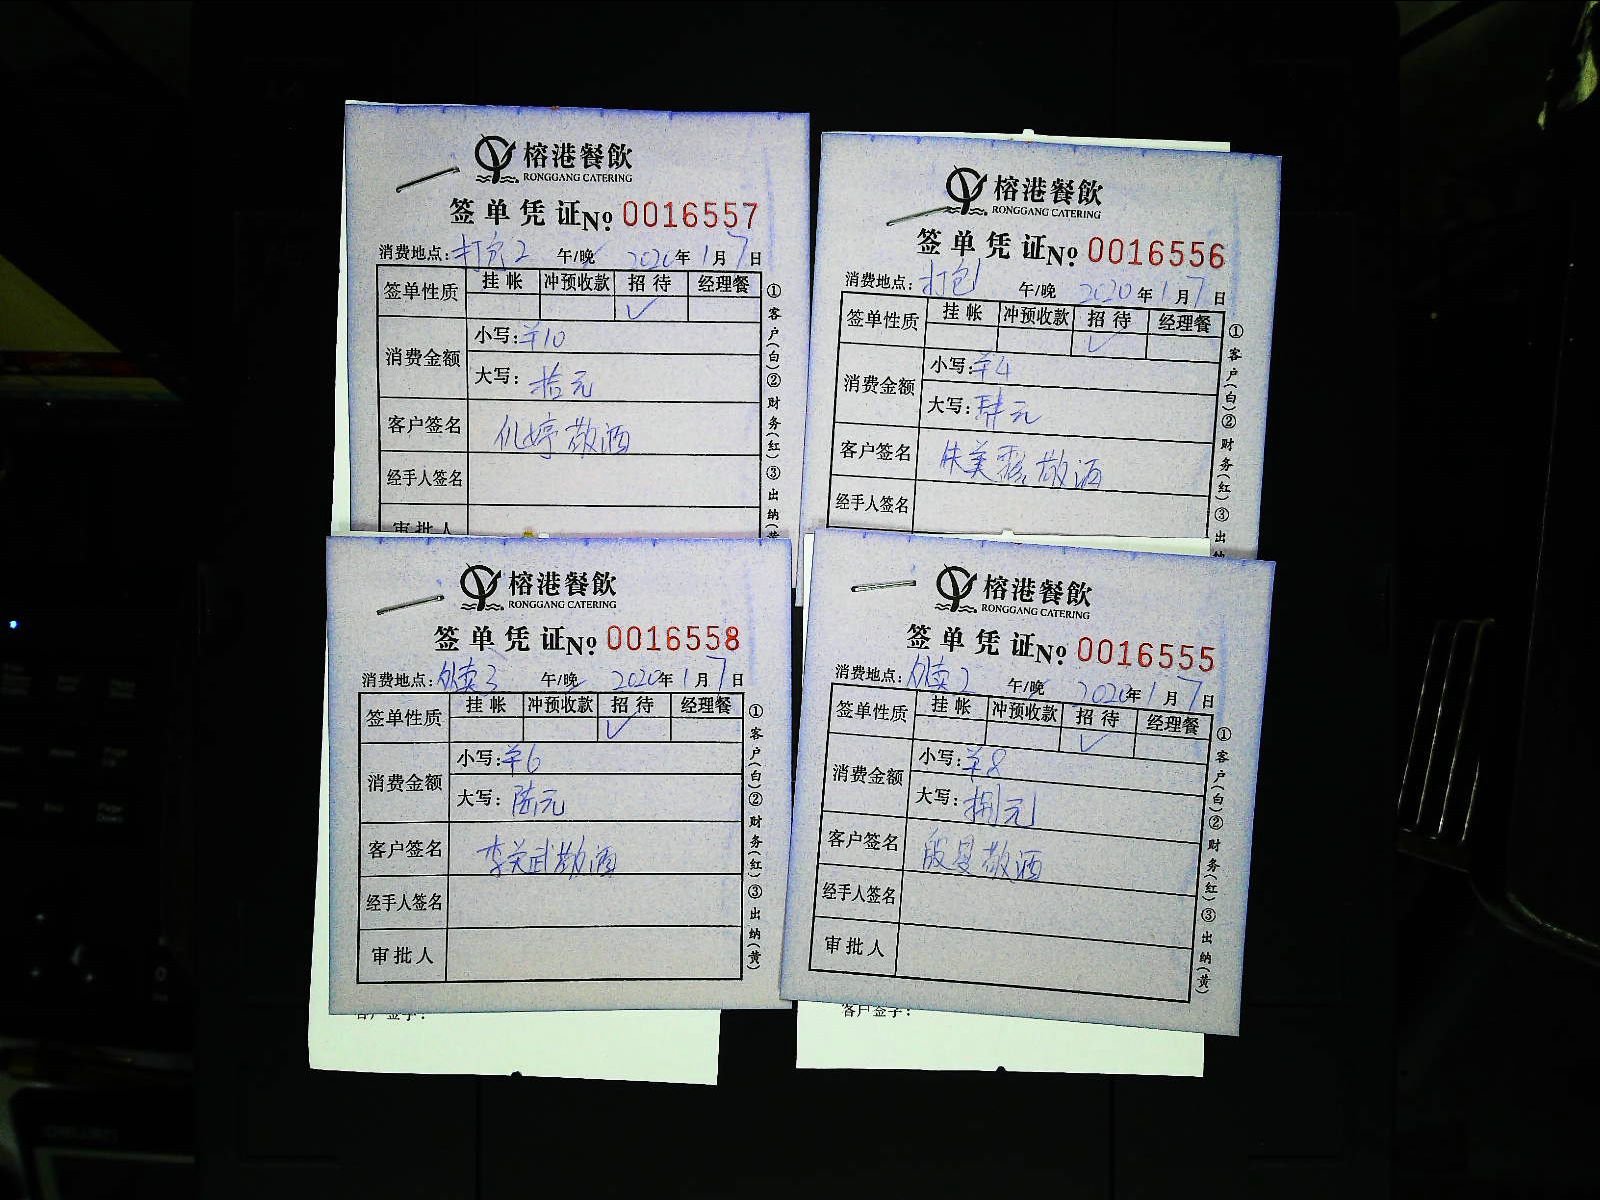 榕港餐飲
RONGGANG CATERING
签单凭证№ 0016557
消费地点: 打包2 午/晚 2020年1月7日
签单性质 挂帐 冲预收款 招待 经理餐
✓
消费金额 小写: ¥10
大写: 拾元
客户签名 婷敬酒
经手人签名
审批人
①客户(白)②财务(红)③出纳(黄
榕港餐飲
RONGGANG CATERING
签单凭证№ 0016556
消费地点: 打包1 午/晚 2020年1月7日
签单性质 挂帐 冲预收款 招待 经理餐
✓
消费金额 小写: ¥4
大写: 肆元
客户签名 朱美霞敬酒
经手人签名
①客户(白)②财务(红)③出纳
榕港餐飲
RONGGANG CATERING
签单凭证№ 0016558
消费地点: 外卖3 午/晚 2020年1月7日
签单性质 挂帐 冲预收款 招待 经理餐
✓
消费金额 小写: ¥6
大写: 陆元
客户签名 李关武敬酒
经手人签名
审批人
①客户(白)②财务(红)③出纳(黄)
客户签字:
榕港餐飲
RONGGANG CATERING
签单凭证№ 0016555
消费地点: 外卖2 午/晚 2020年1月7日
签单性质 挂帐 冲预收款 招待 经理餐
✓
消费金额 小写: ¥8
大写: 捌元
客户签名 殷昊敬酒
经手人签名
审批人
①客户(白)②财务(红)③出纳(黄)
客户签字: